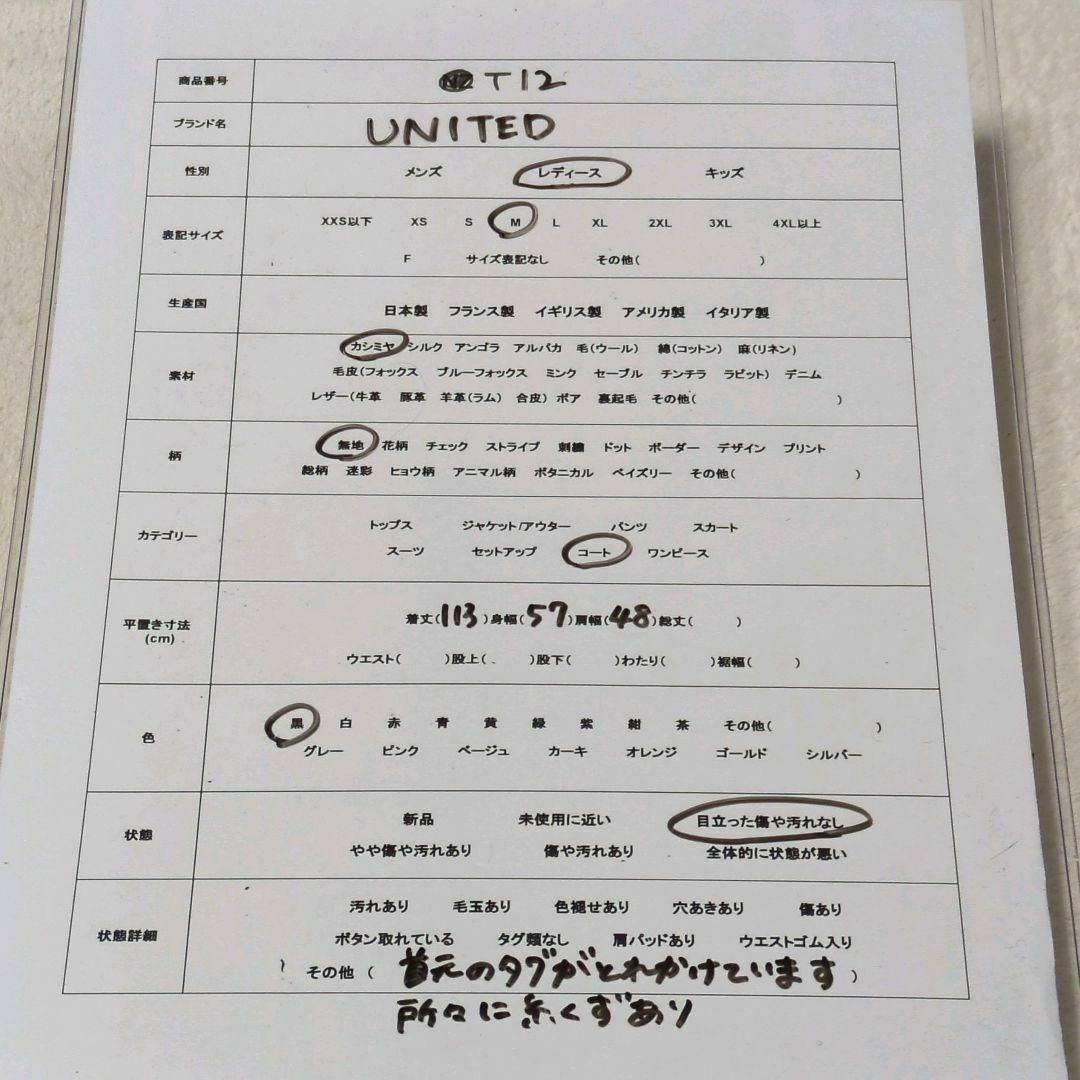 商品番号 T12
ブランド名 UNITED
性別 メンズ レディース キッズ
XXS以下 XS S M L XL 2XL 3XL 4XL以上
表記サイズ
F サイズ表記なし その他( )
生産国 日本製 フランス製 イギリス製 アメリカ製 イタリア製
カシミヤ シルク アンゴラ アルパカ 毛(ウール) 綿(コットン) 麻(リネン)
素材 毛皮(フォックス ブルーフォックス ミンク セーブル チンチラ ラビット) デニム
レザー(牛革 豚革 羊革(ラム) 合皮) ボア 裏起毛 その他( )
無地 花柄 チェック ストライプ 刺繍 ドット ボーダー デザイン プリント
柄
総柄 迷彩 ヒョウ柄 アニマル柄 ボタニカル ペイズリー その他( )
トップス ジャケット/アウター パンツ スカート
カテゴリー
スーツ セットアップ コート ワンピース
平置き寸法 着丈(113)身幅(57)肩幅(48)総丈( )
(cm)
ウエスト( )股上( )股下( )わたり( )裾幅( )
黒 白 赤 青 黄 緑 紫 紺 茶 その他( )
色
グレー ピンク ベージュ カーキ オレンジ ゴールド シルバー
新品 未使用に近い 目立った傷や汚れなし
状態
やや傷や汚れあり 傷や汚れあり 全体的に状態が悪い
汚れあり 毛玉あり 色褪せあり 穴あきあり 傷あり
状態詳細
ボタン取れている タグ類なし 肩パッドあり ウエストゴム入り
その他 ( 首元のタグがとれかけています )
所々に糸くずあり